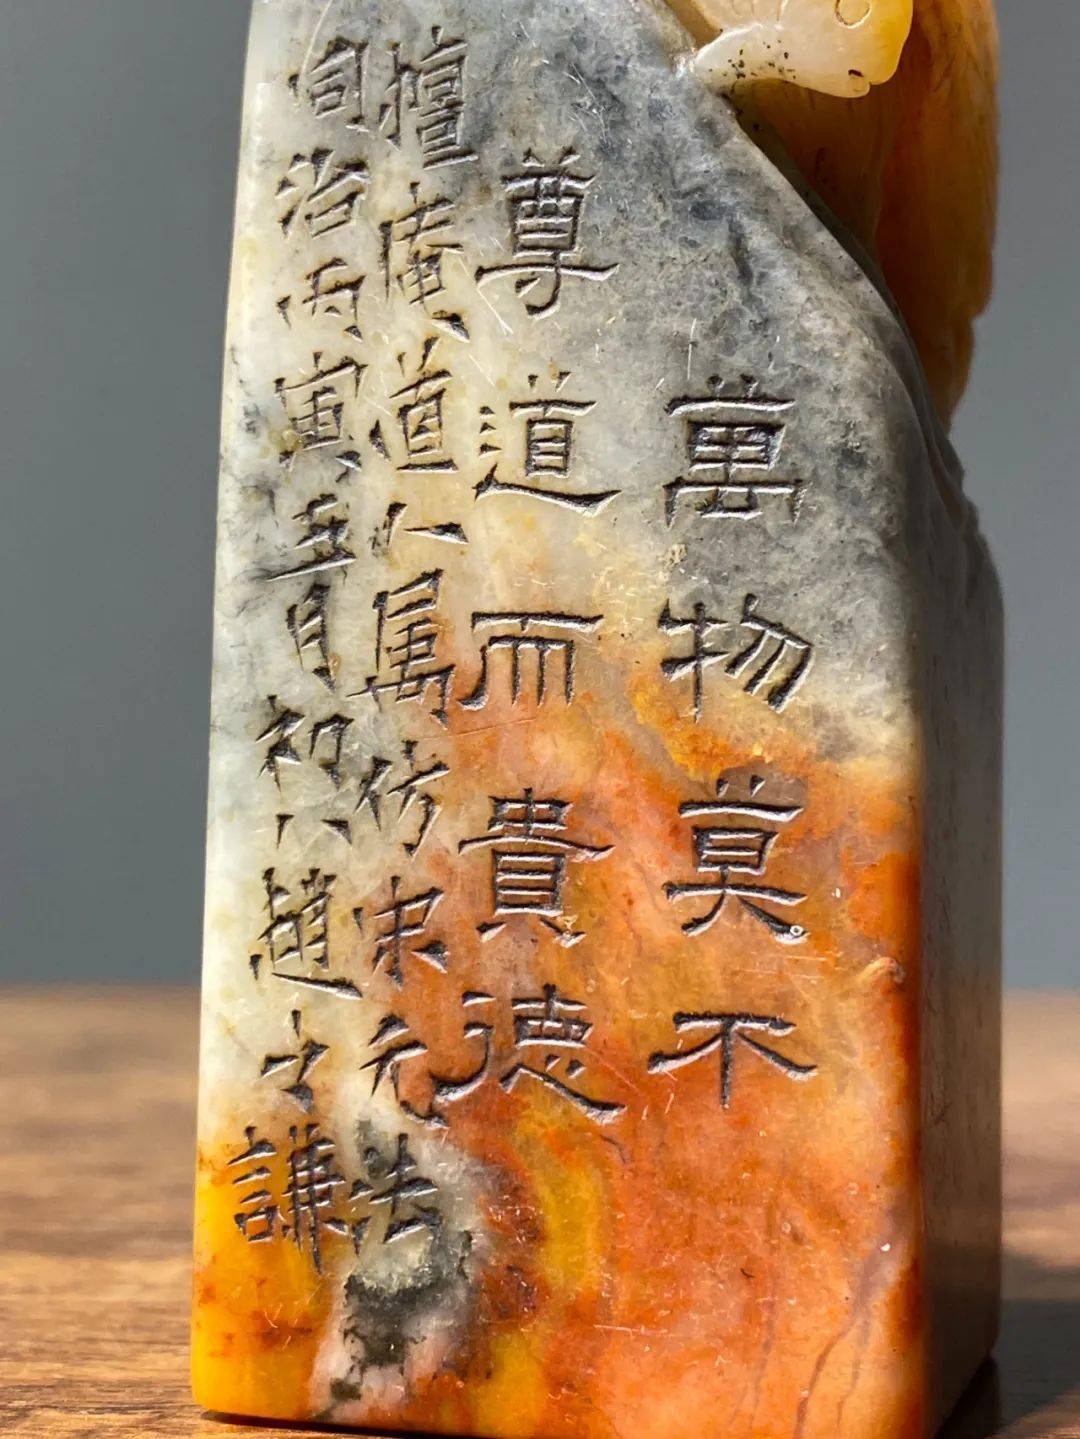 萬物莫不
尊道而貴德
檀庵道人屬仿宋元法
同治丙寅五月初八趙之謙